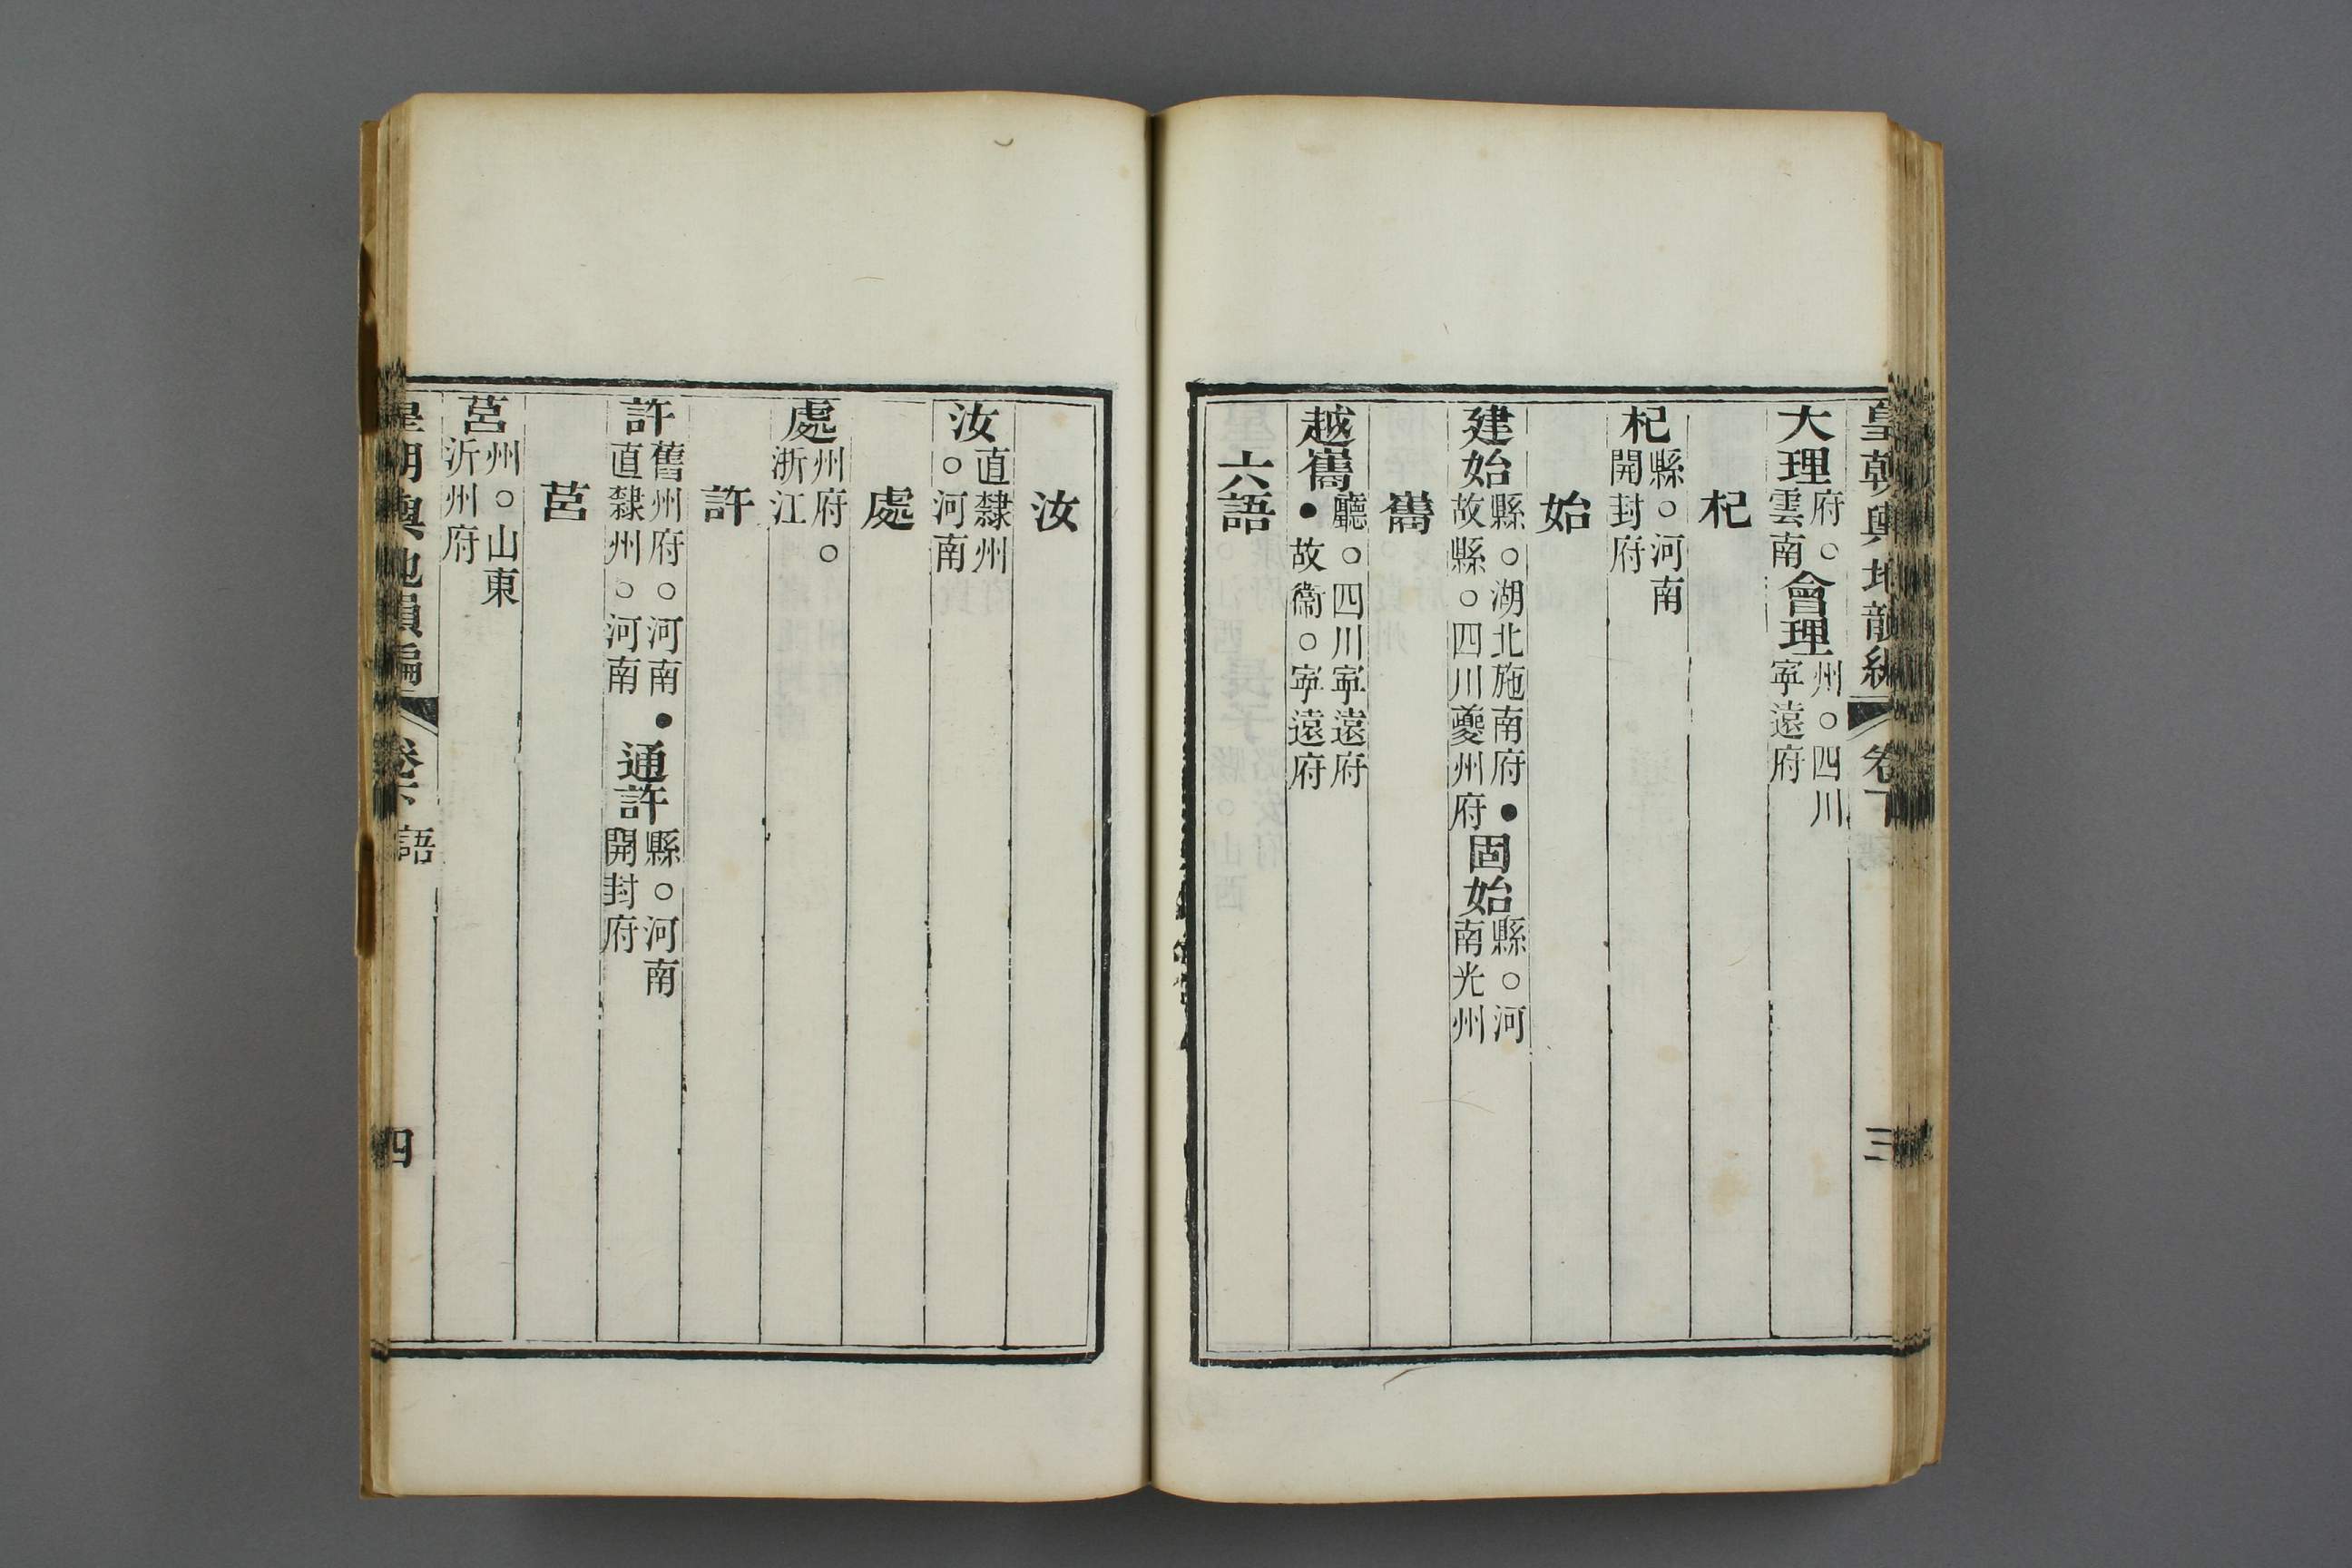 皇朝輿地韻編 卷下 三
大理府○雲南會理州○四川寧遠府
杞
杞縣○河南開封府
始
建始縣○湖北施南府●故縣○四川夔州府固始縣○河南光州
巂
越巂廳○四川寧遠府●故衞○寧遠府
六語
汝
汝直隸州○河南
處
處州府○浙江
許
許舊州府○河南●直隸州○河南通許縣○河南開封府
莒
莒州○山東沂州府
皇朝輿地韻編 卷下 語 四